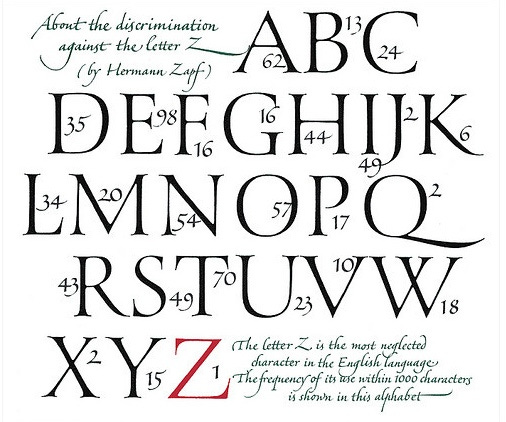 About the discrimination
against the letter Z
(by Hermann Zapf)
A 62 B 13 C 24
35 D E 98 F 16 G 16 H 44 I 49 J 2 K 6
L 34 M 20 N 54 O 57 P 17 Q 2
43 R S 49 T 70 U 23 V 10 W 18
X 2 Y 15 Z 1
The letter Z is the most neglected
character in the English language
The frequency of its use within 1000 characters
is shown in this alphabet